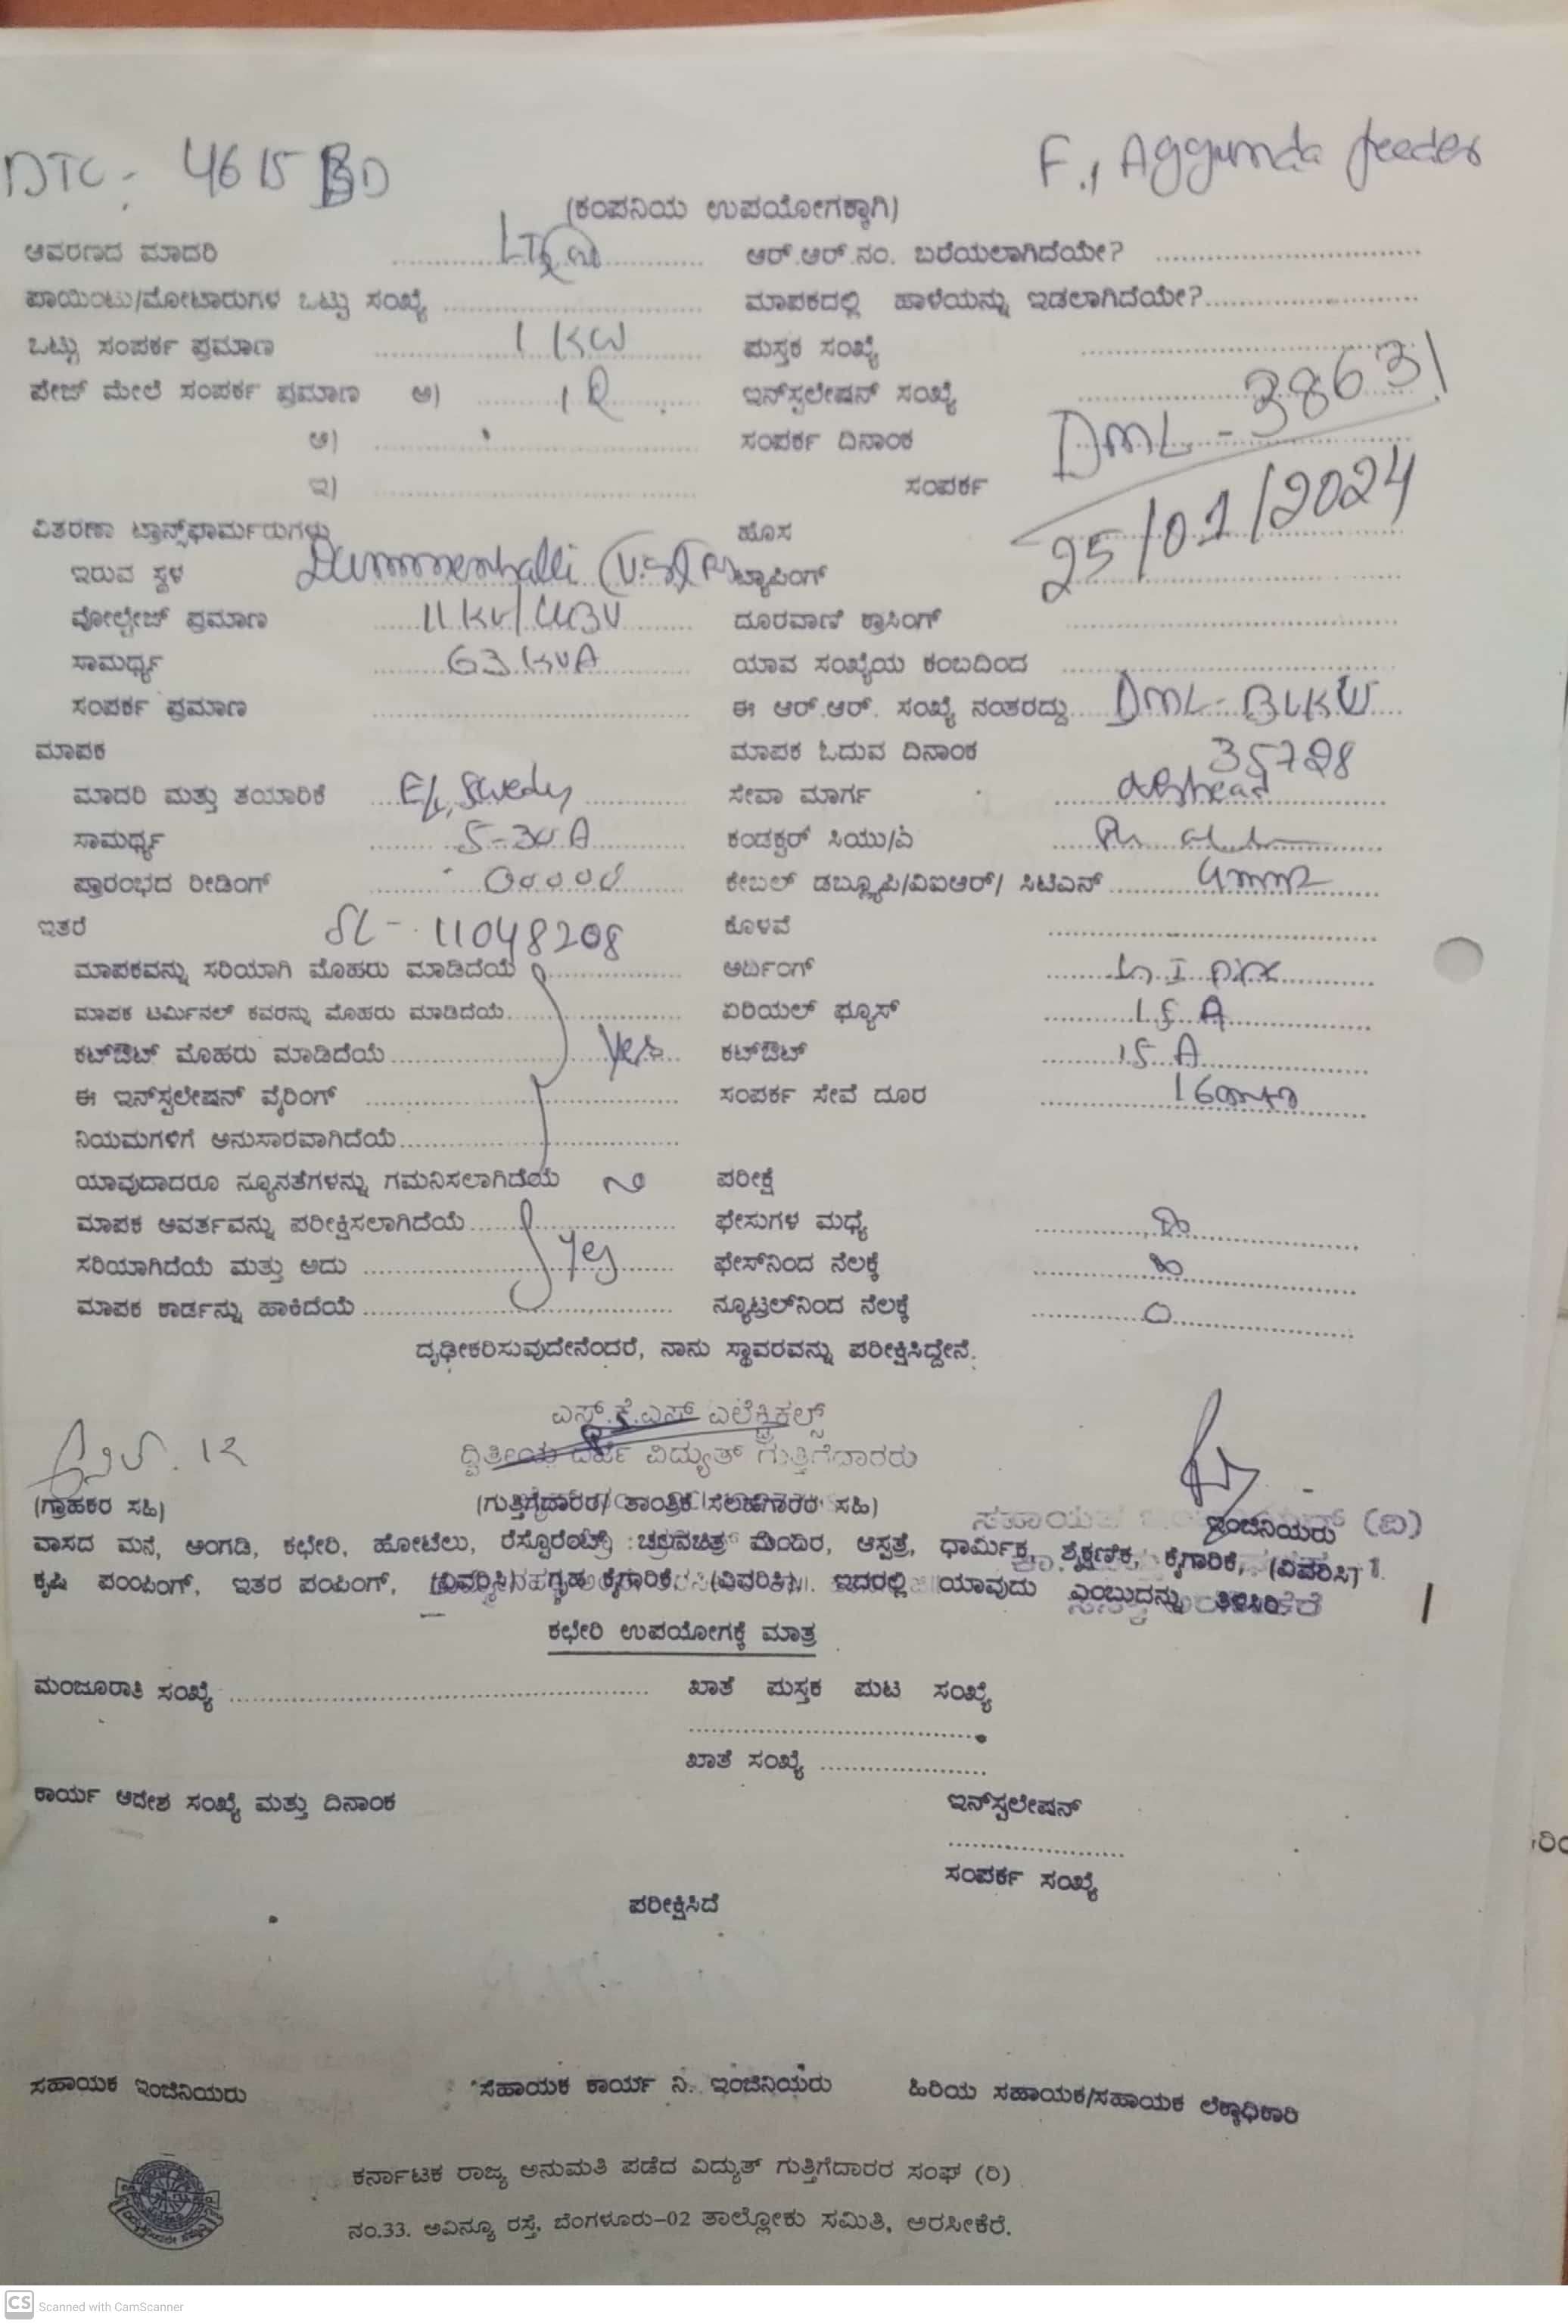 DTC - 4615 BD F., Aggunda feeder
(ಕಂಪನಿಯ ಉಪಯೋಗಕ್ಕಾಗಿ)
ಆವರಣದ ಮಾದರಿ ಆರ್.ಆರ್.ನಂ. ಬರೆಯಲಾಗಿದೆಯೇ?
ಪಾಯಿಂಟು/ಮೋಟಾರುಗಳ ಒಟ್ಟು ಸಂಖ್ಯೆ ಮಾಪಕದಲ್ಲಿ ಹಾಳೆಯನ್ನು ಇಡಲಾಗಿದೆಯೇ?
ಒಟ್ಟು ಸಂಪರ್ಕ ಪ್ರಮಾಣ 1 KW ಪುಸ್ತಕ ಸಂಖ್ಯೆ
ಪೇಜ್ ಮೇಲೆ ಸಂಪರ್ಕ ಪ್ರಮಾಣ ಅ) ಇನ್‌ಸ್ಟಲೇಷನ್ ಸಂಖ್ಯೆ DML - 38631
ಆ) ಸಂಪರ್ಕ ದಿನಾಂಕ 25/01/2024
ಇ) ಸಂಪರ್ಕ
ವಿತರಣಾ ಟ್ರಾನ್ಸ್‌ಫಾರ್ಮರುಗಳು ಹೊಸ
ಇರುವ ಸ್ಥಳ Dummenhalli ಟ್ಯಾಪಿಂಗ್
ವೋಲ್ಟೇಜ್ ಪ್ರಮಾಣ 11 KV/ 433V ದೂರವಾಣಿ ಕ್ರಾಸಿಂಗ್
ಸಾಮರ್ಥ್ಯ 63 KVA ಯಾವ ಸಂಖ್ಯೆಯ ಕಂಬದಿಂದ
ಸಂಪರ್ಕ ಪ್ರಮಾಣ ಈ ಆರ್.ಆರ್. ಸಂಖ್ಯೆ ನಂತರದ್ದು DML- BLKW
ಮಾಪಕ ಮಾಪಕ ಓದುವ ದಿನಾಂಕ 35728
ಮಾದರಿ ಮತ್ತು ತಯಾರಿಕೆ ಸೇವಾ ಮಾರ್ಗ overhead
ಸಾಮರ್ಥ್ಯ 5-30 A ಕಂಡಕ್ಟರ್ ಸಿಯು/ಎ
ಪ್ರಾರಂಭದ ರೀಡಿಂಗ್ 00000 ಕೇಬಲ್ ಡಬ್ಲ್ಯೂಪಿ/ವಿಐಆರ್/ ಸಿಟಿಎಸ್ 4mm2
ಇತರೆ SL - 11048208 ಕೊಳವೆ
ಮಾಪಕವನ್ನು ಸರಿಯಾಗಿ ಮೊಹರು ಮಾಡಿದೆಯೆ ಅರ್ದಿಂಗ್
ಮಾಪಕ ಟರ್ಮಿನಲ್ ಕವರನ್ನು ಮೊಹರು ಮಾಡಿದೆಯೆ ಏರಿಯಲ್ ಫ್ಯೂಸ್ 15 A
ಕಟ್‌ಔಟ್ ಮೊಹರು ಮಾಡಿದೆಯೆ Yes ಕಟ್‌ಔಟ್ 15 A
ಈ ಇನ್‌ಸ್ಟಲೇಷನ್ ವೈರಿಂಗ್ ಸಂಪರ್ಕ ಸೇವೆ ದೂರ
ನಿಯಮಗಳಿಗೆ ಅನುಸಾರವಾಗಿದೆಯೆ
ಯಾವುದಾದರೂ ನ್ಯೂನತೆಗಳನ್ನು ಗಮನಿಸಲಾಗಿದೆಯೆ No ಪರೀಕ್ಷೆ
ಮಾಪಕ ಆವರ್ತವನ್ನು ಪರೀಕ್ಷಿಸಲಾಗಿದೆಯೆ ಫೇಸುಗಳ ಮಧ್ಯೆ
ಸರಿಯಾಗಿದೆಯೆ ಮತ್ತು ಅದು Yes ಫೇಸ್‌ನಿಂದ ನೆಲಕ್ಕೆ
ಮಾಪಕ ಕಾರ್ಡನ್ನು ಹಾಕಿದೆಯೆ ನ್ಯೂಟ್ರಲ್‌ನಿಂದ ನೆಲಕ್ಕೆ 0
ದೃಢೀಕರಿಸುವುದೇನೆಂದರೆ, ನಾನು ಸ್ಥಾವರವನ್ನು ಪರೀಕ್ಷಿಸಿದ್ದೇನೆ.
ಎಸ್.ಕೆ.ಎಸ್ ಎಲೆಕ್ಟ್ರಿಕಲ್ಸ್
ದ್ವಿತೀಯ ದರ್ಜೆ ವಿದ್ಯುತ್ ಗುತ್ತಿಗೆದಾರರು
(ಗ್ರಾಹಕರ ಸಹಿ) (ಗುತ್ತಿಗೆದಾರರ/ ತಾಂತ್ರಿಕ ಸಲಹಗಾರರ ಸಹಿ) ಇಂಜಿನಿಯರು
ವಾಸದ ಮನೆ, ಅಂಗಡಿ, ಕಛೇರಿ, ಹೋಟೆಲು, ರೆಸ್ಟೊರೆಂಟ್ ಚಲನಚಿತ್ರ ಮಂದಿರ, ಆಸ್ಪತ್ರೆ, ಧಾರ್ಮಿಕ, ಶೈಕ್ಷಣಿಕ, ಕೈಗಾರಿಕೆ, (ವಿವರಿಸಿ)
ಕೃಷಿ ಪಂಪಿಂಗ್, ಇತರ ಪಂಪಿಂಗ್, (ವಿವರಿಸಿ) ಗೃಹ ಕೈಗಾರಿಕೆ (ವಿವರಿಸಿ). ಇದರಲ್ಲಿ ಯಾವುದು ಎಂಬುದನ್ನು ತಿಳಿಸಿರಿ
ಕಛೇರಿ ಉಪಯೋಗಕ್ಕೆ ಮಾತ್ರ
ಮಂಜೂರಾತಿ ಸಂಖ್ಯೆ ಖಾತೆ ಪುಸ್ತಕ ಪುಟ ಸಂಖ್ಯೆ
ಖಾತೆ ಸಂಖ್ಯೆ
ಕಾರ್ಯ ಆದೇಶ ಸಂಖ್ಯೆ ಮತ್ತು ದಿನಾಂಕ ಇನ್‌ಸ್ಟಲೇಷನ್
ಸಂಪರ್ಕ ಸಂಖ್ಯೆ
ಪರೀಕ್ಷಿಸಿದೆ
ಸಹಾಯಕ ಇಂಜಿನಿಯರು ಸಹಾಯಕ ಕಾರ್ಯ ನಿ. ಇಂಜಿನಿಯರು ಹಿರಿಯ ಸಹಾಯಕ/ಸಹಾಯಕ ಲೆಕ್ಕಾಧಿಕಾರಿ
ಕರ್ನಾಟಕ ರಾಜ್ಯ ಅನುಮತಿ ಪಡೆದ ವಿದ್ಯುತ್ ಗುತ್ತಿಗೆದಾರರ ಸಂಘ (ರಿ)
ನಂ.33. ಅವಿನ್ಯೂ ರಸ್ತೆ, ಬೆಂಗಳೂರು-02 ತಾಲ್ಲೋಕು ಸಮಿತಿ, ಅರಸೀಕೆರೆ.
CS Scanned with CamScanner